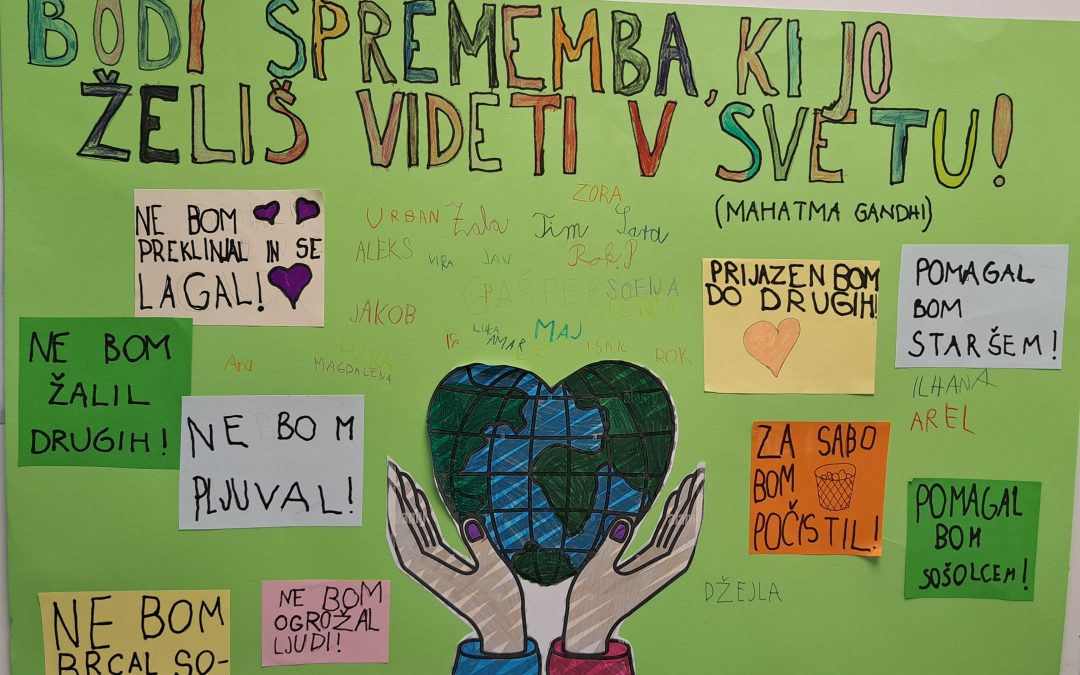 BODI SPREMEMBA, KI JO
ŽELIŠ VIDETI V SVETU!
(MAHATMA GANDHI)
NE BOM
PREKLINJAL IN SE
LAGAL!
ZORA
URBAN Žala Tim Sara
ALEKS VIRA JAN Rok.P
GAŠPER SOFIJA
JAKOB
LUKA AMAR MAJ
ISAK ROK
MAGDALENA
PRIJAZEN BOM
DO DRUGIH!
POMAGAL
BOM
STARŠEM!
ILHANA
AREL
NE BOM
ŽALIL
DRUGIH!
NE BOM
PLJUVAL!
ZA SABO
BOM
POČISTIL!
POMAGAL
BOM
SOŠOLCEM!
DŽEJLA
NE BOM
OGROŽAL
LJUDI!
NE BOM
BRCAL SO-